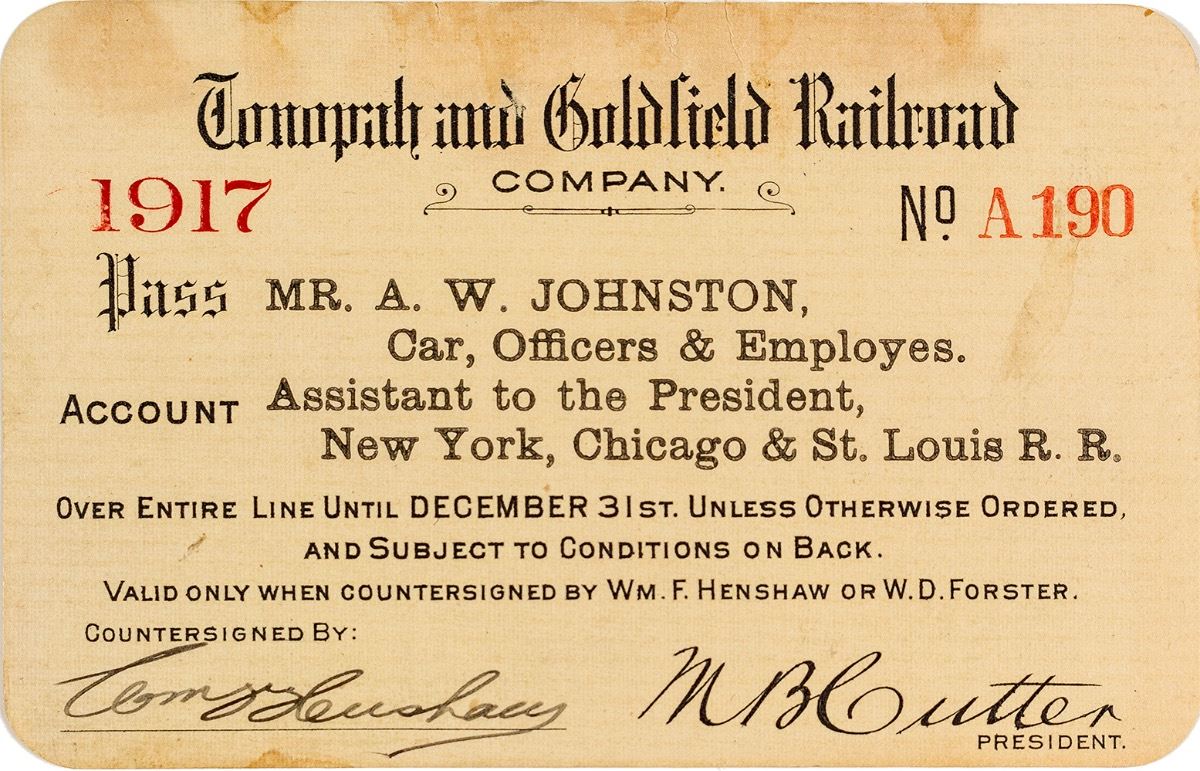 Tonopah and Goldfield Railroad
COMPANY.
1917
No. A190
Pass MR. A. W. JOHNSTON,
Car, Officers & Employes.
ACCOUNT Assistant to the President,
New York, Chicago & St. Louis R. R.
OVER ENTIRE LINE UNTIL DECEMBER 31ST. UNLESS OTHERWISE ORDERED,
AND SUBJECT TO CONDITIONS ON BACK.
VALID ONLY WHEN COUNTERSIGNED BY WM. F. HENSHAW OR W. D. FORSTER.
COUNTERSIGNED BY:
Wm F Henshaw
M B Cutter
PRESIDENT.